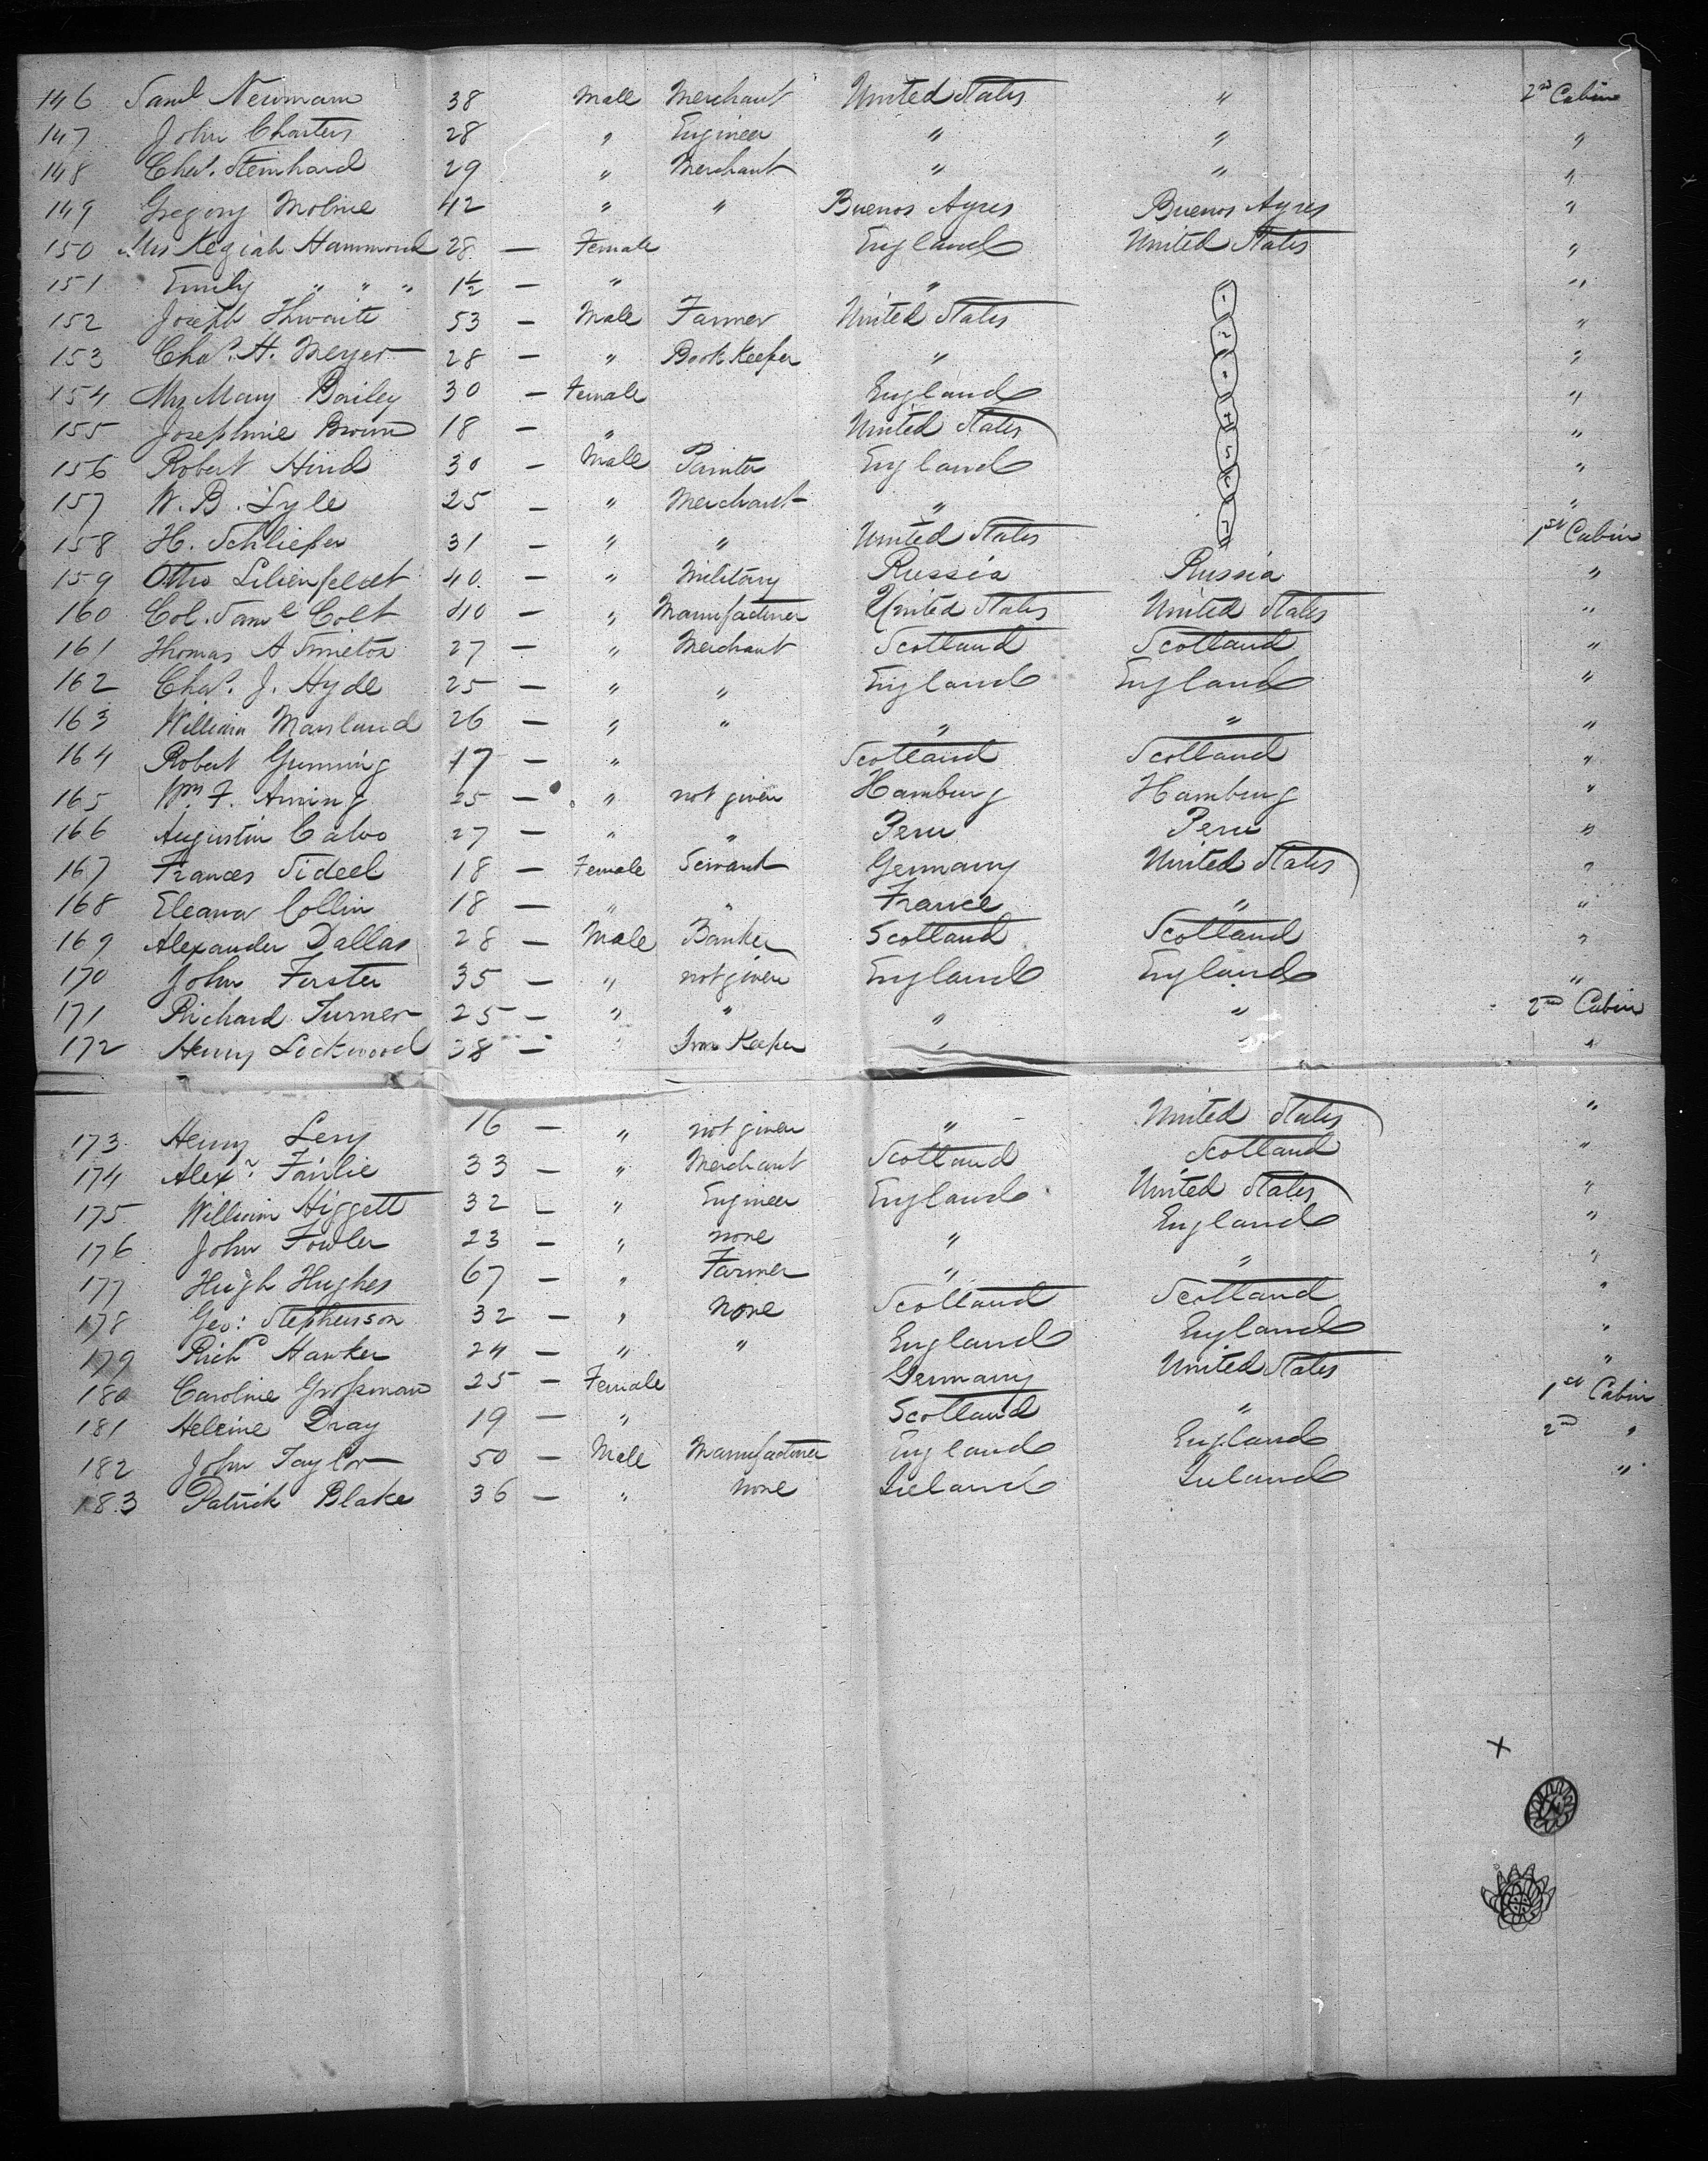 146 Saml Newman 38 Male Merchant United States " 2nd Cabin
147 John Charters 28 " Engineer " " "
148 Chas. Steinhard 29 " Merchant " " "
149 Gregory Moline 42 " " Buenos Ayres Buenos Ayres "
150 Mrs Keziah Hammond 28 — Female England United States "
151 Emily " " " 1½ — " " "
152 Joseph Thwaite 53 — Male Farmer United States "
153 Chas. H. Meyer 28 — " Book Keeper " "
154 Mrs Mary Bailey 30 — Female England "
155 Josephine Brown 18 — " United States "
156 Robert Hind 30 — Male Painter England "
157 W. B. Lyle 25 — " Merchant " "
158 H. Schlieper 31 — " " United States 1st Cabin
159 Otto Lilienfeldt 40 — " Military Russia Russia "
160 Col. Saml Colt 40 — " Manufacturer United States United States "
161 Thomas A 27 — " Merchant Scotland Scotland "
162 Chas. J. Hyde 25 — " " England England "
163 William Marsland 26 — " " " " "
164 Robert Gunning 17 — " Scotland Scotland "
165 Wm F. 25 — " not given Hamburg Hamburg "
166 Augustin Calvo 27 — " " Peru Peru "
167 Frances Sideel 18 — Female Servant Germany United States "
168 Eleanor Collin 18 — " " France " "
169 Alexander Dallas 28 — Male Banker Scotland Scotland "
170 John Forster 35 — " not given England England "
171 Richard Turner 25 — " " " " 2nd Cabin
172 Henry Lockwood 38 — " Inn Keeper " " "
173 Henry Levy 16 — " not given " United States "
174 Alexr Fairlie 33 — " Merchant Scotland Scotland "
175 William Higgett 32 — " Engineer England United States "
176 John Fowler 23 — " none " England "
177 Hugh Hughes 67 — " Farmer " " "
178 Geo: Stephenson 32 — " none Scotland Scotland "
179 Richd Hawker 24 — " " England England "
180 Caroline Grossman 25 — Female Germany United States 1st Cabin
181 Heleine Dray 19 — " Scotland " 2nd "
182 John Taylor 50 — Male Manufacturer England England "
183 Patrick Blake 36 — " none Ireland Ireland